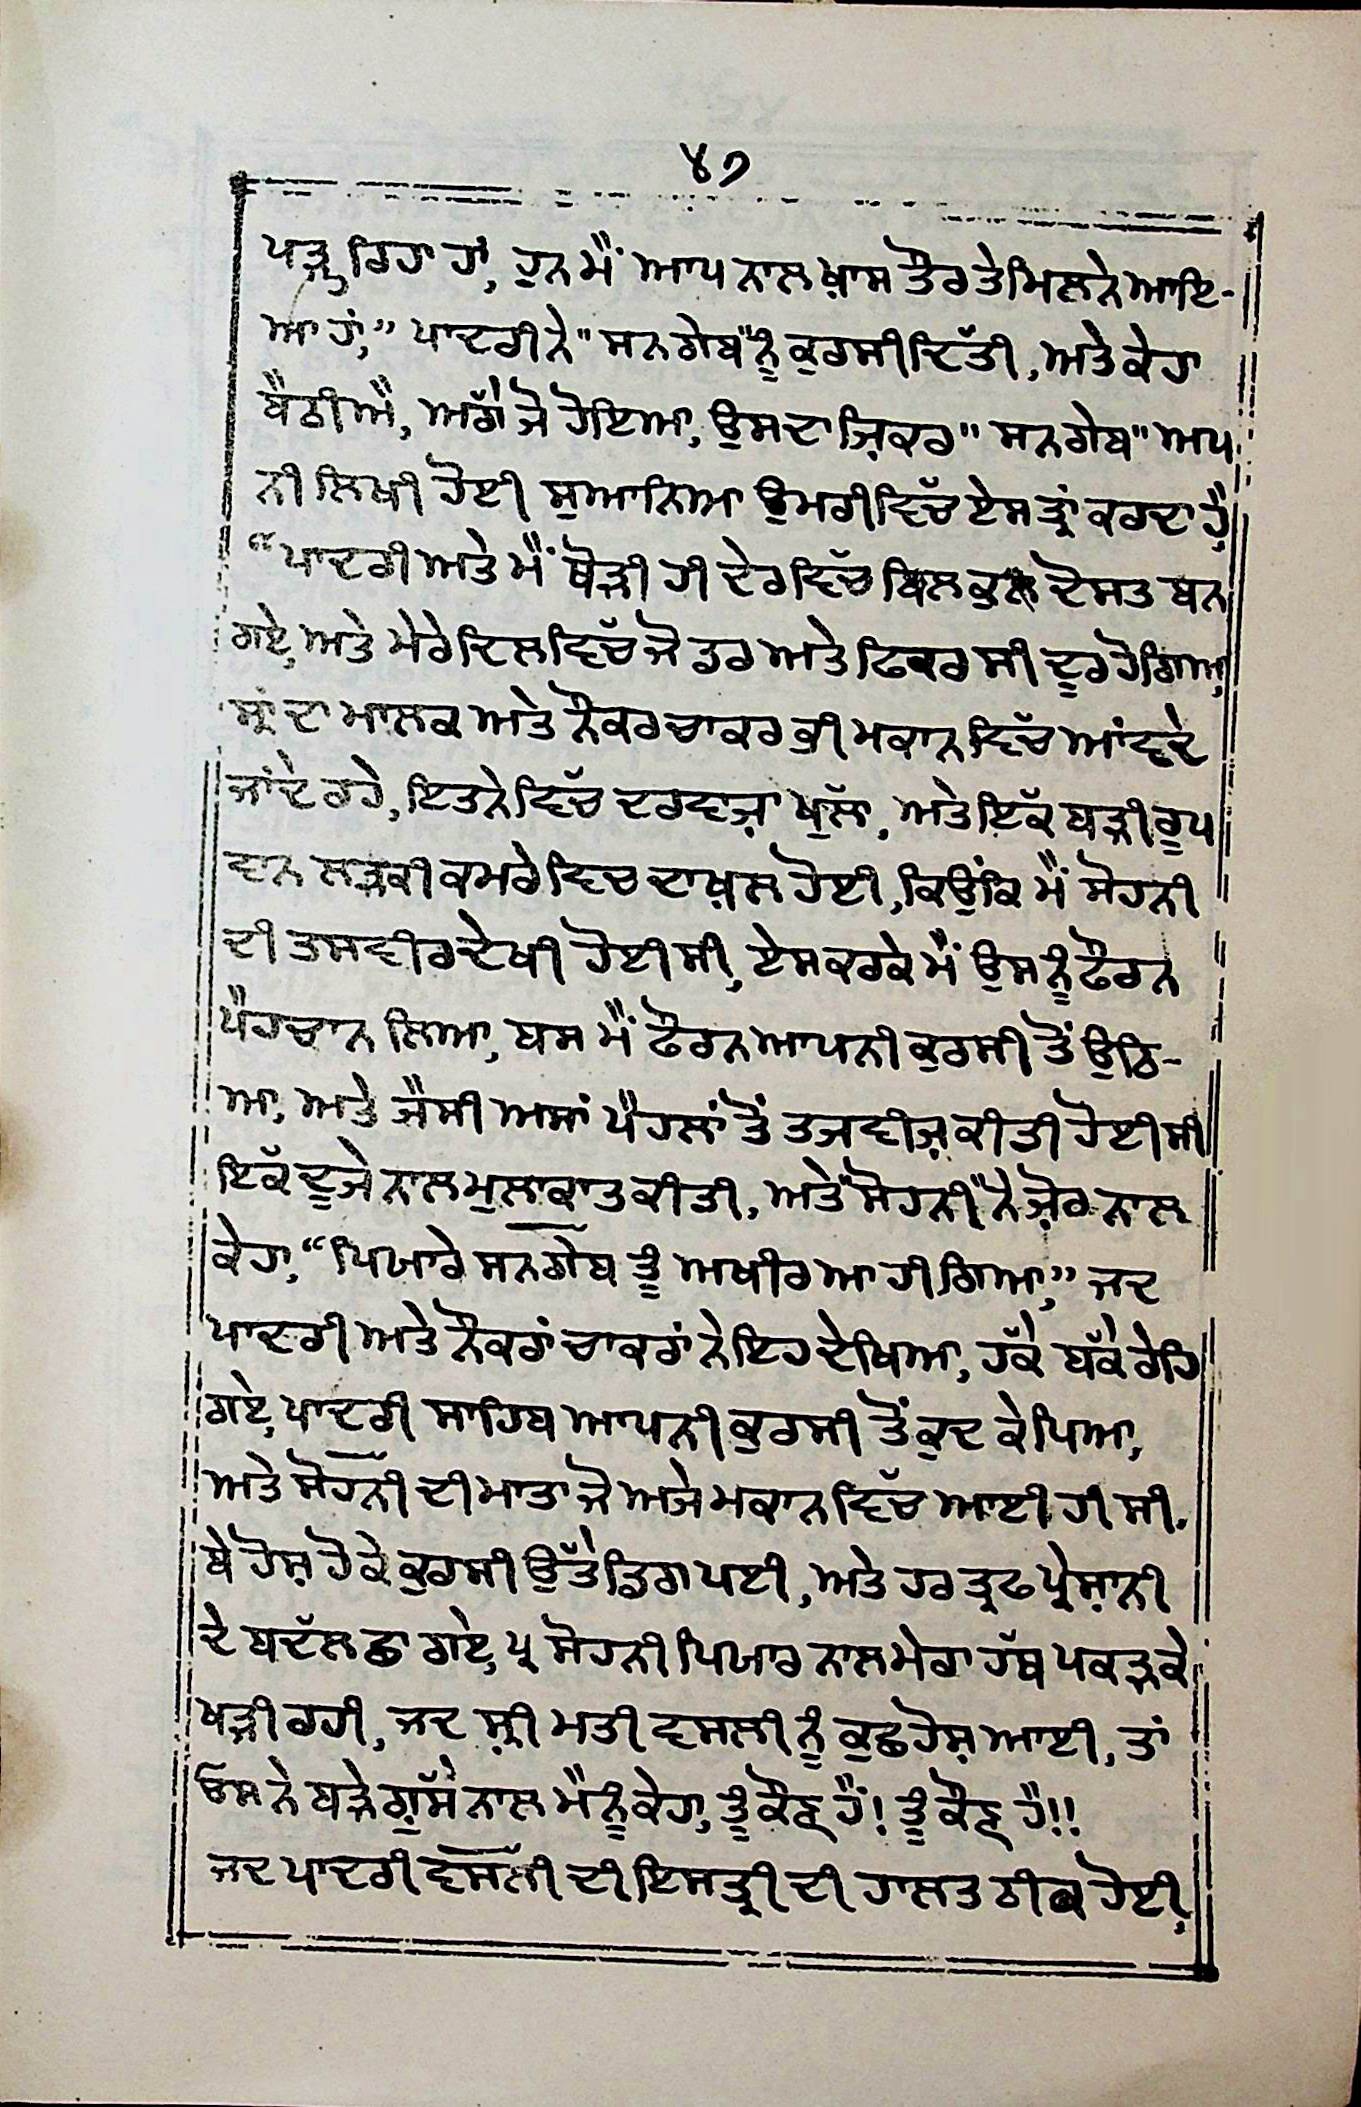 ੪੭
ਪੜ੍ਹ ਰਿਹਾ ਹਾਂ, ਹੁਨ ਮੈਂ ਆਪ ਨਾਲ ਖ਼ਾਸ ਤੌਰ ਤੇ ਮਿਲਨੇ ਆਇ-
ਆ ਹਾਂ,” ਪਾਦਰੀ ਨੇ "ਸਨਗੇਬ" ਨੂੰ ਕੁਰਸੀ ਦਿੱਤੀ, ਅਤੇ ਕੇਹਾ
ਬੈਠੀਐ, ਅੱਗੇ ਜੋ ਹੋਇਆ, ਉਸਦਾ ਜ਼ਿਕਰ "ਸਨਗੇਬ" ਆਪ
ਨੀ ਲਿਖੀ ਹੋਈ ਸੁਆਨਿਆ ਉਮਰੀ ਵਿੱਚ ਏਸ ਤ੍ਰਾਂ ਕਰਦਾ ਹੈ,
“ਪਾਦਰੀ ਅਤੇ ਮੈਂ ਥੋੜੀ ਹੀ ਦੇਰ ਵਿੱਚ ਬਿਲਕੁਲ ਦੋਸਤ ਬਨ
ਗਏ, ਅਤੇ ਮੇਰੇ ਦਿਲ ਵਿੱਚ ਜੋ ਡਰ ਅਤੇ ਫਿਕਰ ਸੀ ਦੂਰ ਹੋ ਗਿਆ,
ਦਾ ਮਾਲਕ ਅਤੇ ਨੌਕਰ ਚਾਕਰ ਭੀ ਮਕਾਨ ਵਿੱਚ ਆਂਵਦੇ
ਜਾਂਦੇ ਰਹੇ, ਇਤਨੇ ਵਿੱਚ ਦਰਵਾਜ਼ਾ ਖੁੱਲਾ, ਅਤੇ ਇੱਕ ਬੜੀ ਰੂਪ
ਵਾਨ ਲੜਕੀ ਕਮਰੇ ਵਿਚ ਦਾਖ਼ਲ ਹੋਈ, ਕਿਉਂਕਿ ਮੈਂ ਸੋਹਨੀ
ਦੀ ਤਸਵੀਰ ਦੇਖੀ ਹੋਈ ਸੀ, ਏਸ ਕਰਕੇ ਮੈਂ ਉਸ ਨੂੰ ਫੌਰਨ
ਪੈਹਚਾਨ ਲਿਆ, ਬਸ ਮੈਂ ਫੌਰਨ ਆਪਨੀ ਕੁਰਸੀ ਤੋਂ ਉਠਿ-
ਆ, ਅਤੇ ਜੈਸੀ ਅਸਾਂ ਪੈਹਲਾਂ ਤੋਂ ਤਜਵੀਜ਼ ਕੀਤੀ ਹੋਈ ਸੀ
ਇੱਕ ਦੂਜੇ ਨਾਲ ਮੁਲਾਕਾਤ ਕੀਤੀ, ਅਤੇ "ਸੋਹਨੀ" ਨੇ ਜ਼ੋਰ ਨਾਲ
ਕੇਹਾ, “ਪਿਯਾਰੇ ਸਨਗੇਬ ਤੂੰ ਅਖੀਰ ਆ ਹੀ ਗਿਆ,” ਜਦ
ਪਾਦਰੀ ਅਤੇ ਨੌਕਰਾਂ ਚਾਕਰਾਂ ਨੇ ਇਹ ਦੇਖਿਆ, ਹੱਕੇ ਬੱਕੇ ਰੇਹਿ
ਗਏ, ਪਾਦਰੀ ਸਾਹਿਬ ਆਪਨੀ ਕੁਰਸੀ ਤੋਂ ਕੁਦ ਕੇ ਪਿਆ,
ਅਤੇ ਸੋਹਨੀ ਦੀ ਮਾਤਾ ਜੋ ਅਜੇ ਮਕਾਨ ਵਿੱਚ ਆਈ ਹੀ ਸੀ.
ਬੇਹੋਸ਼ ਹੋਕੇ ਕੁਰਸੀ ਉੱਤੇ ਡਿਗ ਪਈ, ਅਤੇ ਹਰ ਤ੍ਰਫ ਪ੍ਰੇਸ਼ਾਨੀ
ਦੇ ਬਦੱਲ ਛਾ ਗਏ, ਪ੍ਰ ਸੋਹਨੀ ਪਿਯਾਰ ਨਾਲ ਮੇਰਾ ਹੱਥ ਪਕੜਕੇ
ਖੜੀ ਰਹੀ, ਜਦ ਸ਼੍ਰੀ ਮਤੀ ਵਸਲੀ ਨੂੰ ਕੁਛ ਹੋਸ਼ ਆਈ, ਤਾਂ
ਓਸ ਨੇ ਬੜੇ ਗੁੱਸੇ ਨਾਲ ਮੈਨੂੰ ਕੇਹਾ, ਤੂੰ ਕੌਣ ਹੈਂ! ਤੂੰ ਕੌਣ ਹੈ!!
ਜਦ ਪਾਦਰੀ ਵਸਲੀ ਦੀ ਇਸਤ੍ਰੀ ਦੀ ਹਾਲਤ ਠੀਕ ਹੋਈ,